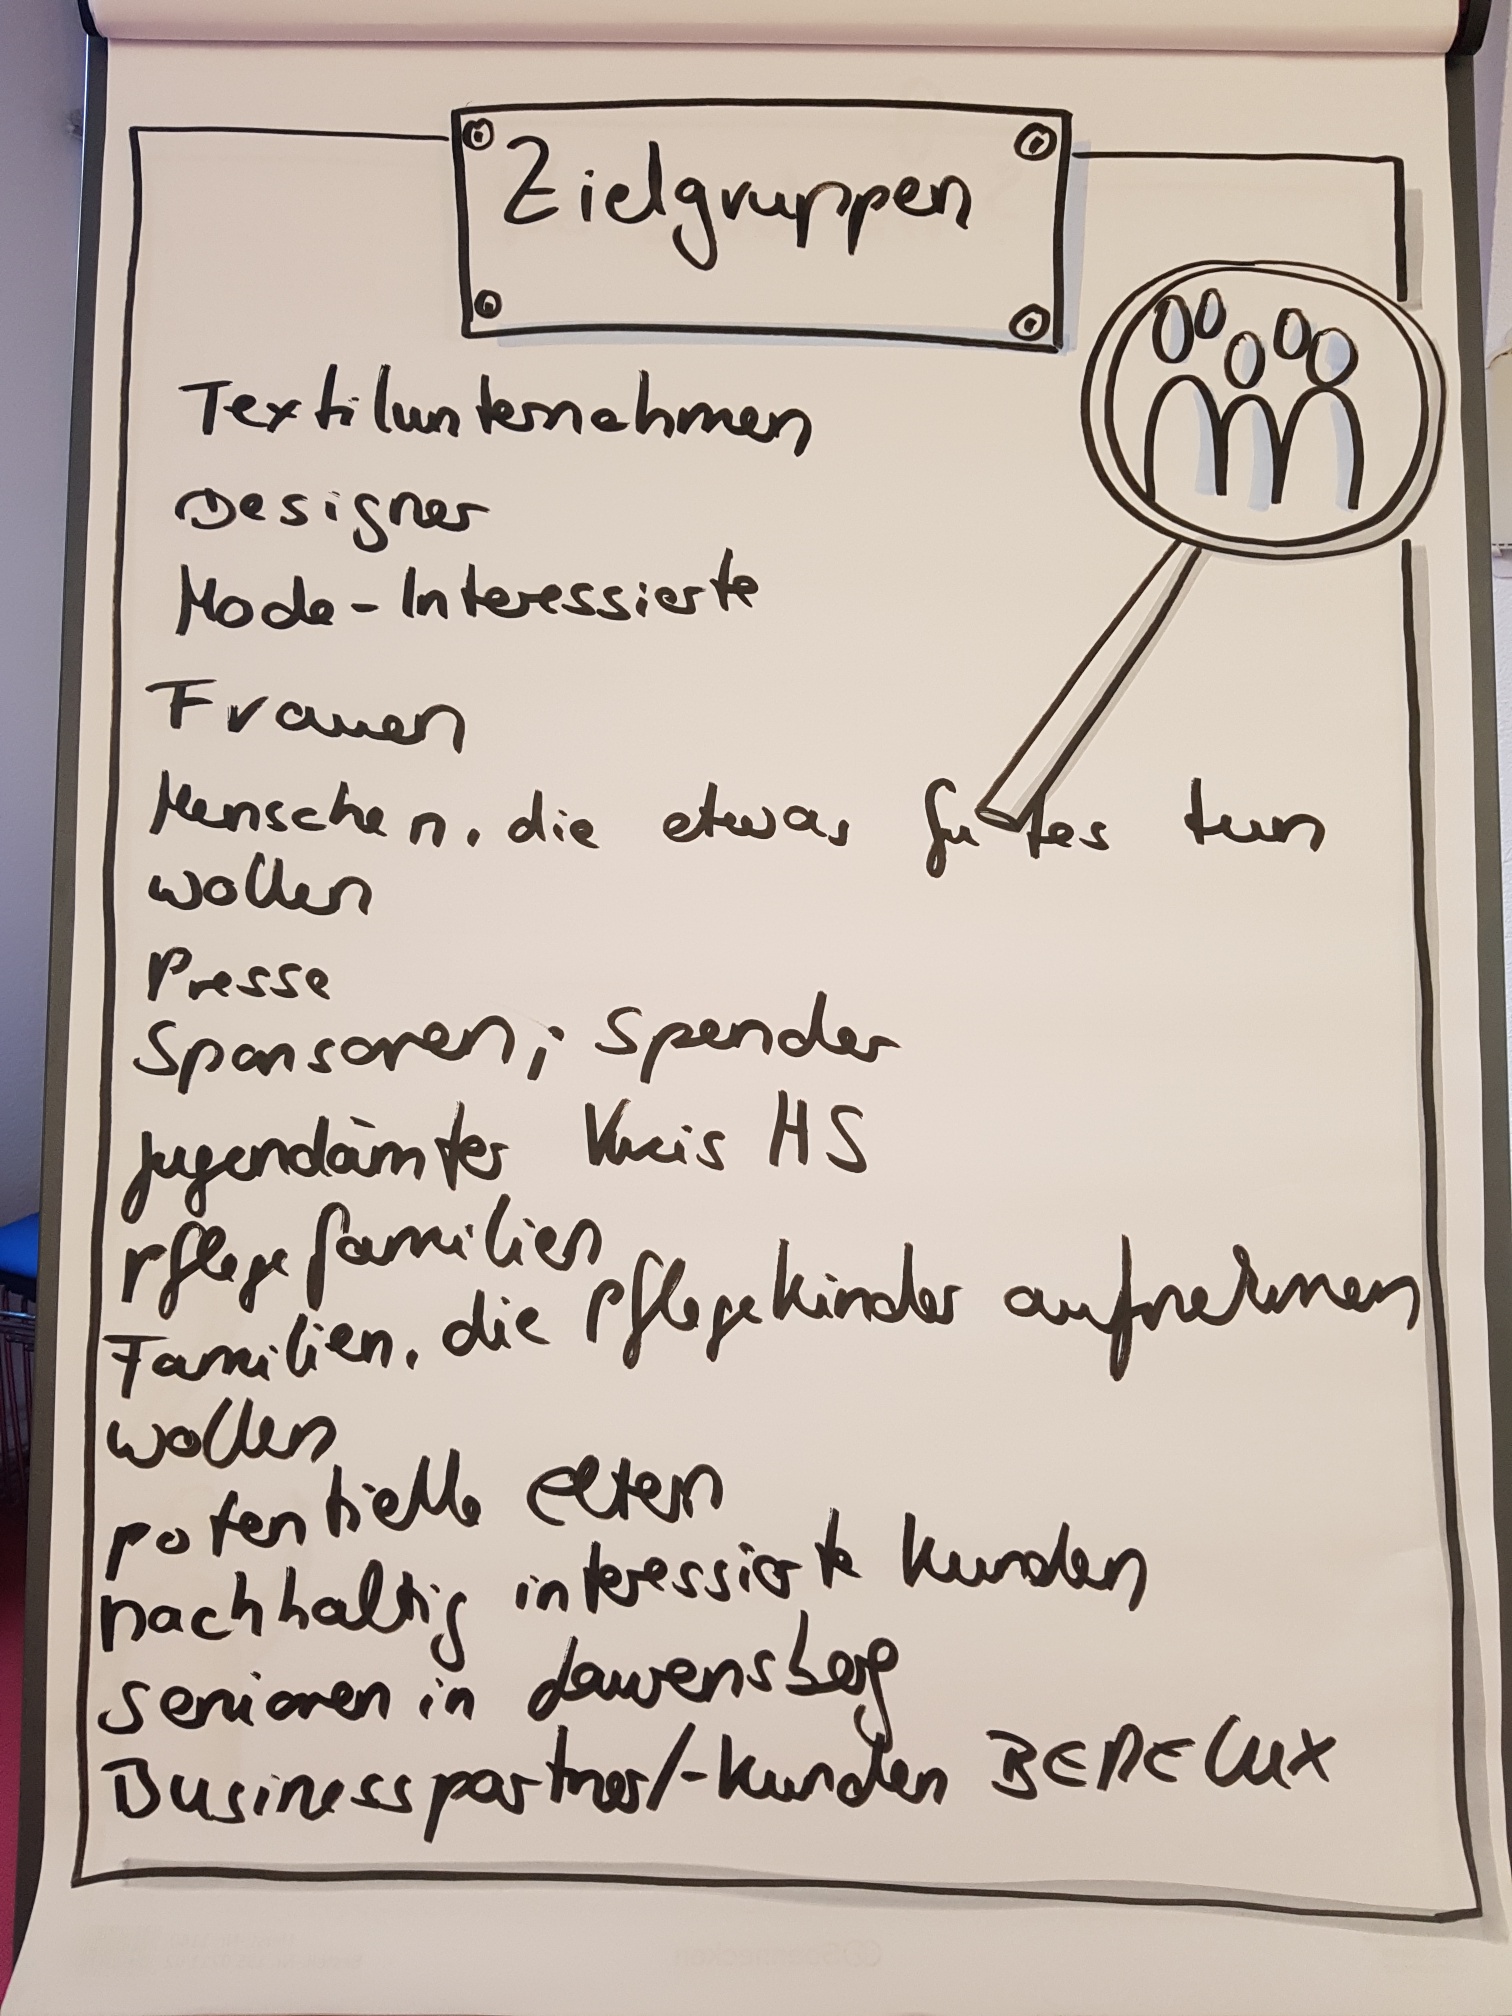 Zielgruppen
Textilunternehmen
Designer
Mode-Interessierte
Frauen
Menschen, die etwas Gutes tun
wollen
Presse
Sponsoren, Spender
Jugendämter Kreis HS
Pflegefamilien
Familien, die Pflegekinder aufnehmen
wollen
potentielle Eltern
nachhaltig interessierte Kunden
Senioren in Laurensberg
Businesspartner/-kunden BENELUX